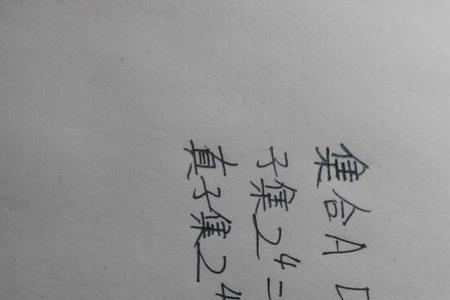 集合A
子集2⁴=
真子集2⁴